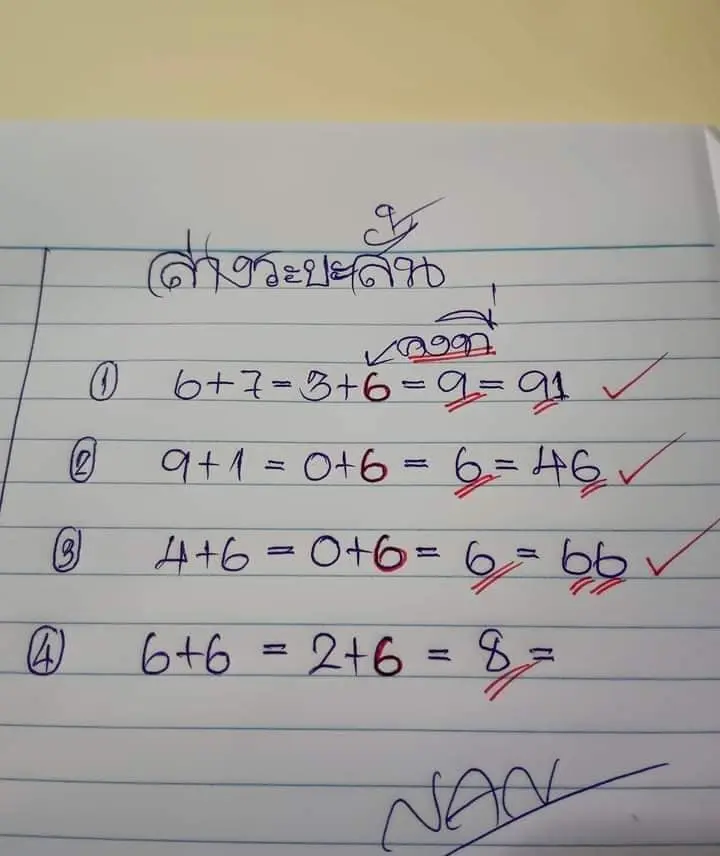 ล่างระยะสั้น
คงที่
① 6+7=3+6=9=91 ✓
② 9+1=0+6=6=46 ✓
③ 4+6=0+6=6=66 ✓
④ 6+6=2+6=8=
NAN